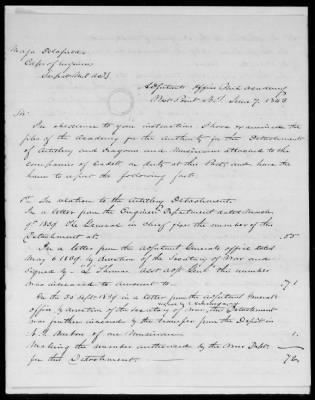 Major Delafield
Corps of Engineers
Supt Mil. Acad.
Adjutants Office Mil. Academy
West Point N.Y. June 7. 1843
Sir.
In obedience to your instructions I have examined the
files of the Academy for the authority for the Detachment
of Artillery and Dragoons and Musicians attached to the
companies of Cadets on duty at this Post, and have the
honor to report the following facts.
In relation to the Artillery Detachment.
In a letter from the Engineer Department dated March
9th 1839. The General in chief fixes the number of the
Detachment at.
In a letter from the Adjutant General's office dated
May 6 1839. by direction of the Secretary of War and
Signed by Thomas Asst Adjt Genl the number
was increased to amount to 71
On the 30 Sept. 1839 in a letter from the Adjutant General's
office, by direction of the Secretary of War, this Detachment
was further increased by the transfer from the Depot in
N.Y. Harbor of one Musician 1.
Making the number authorized by the War Dept.
for this Detachment. 76.